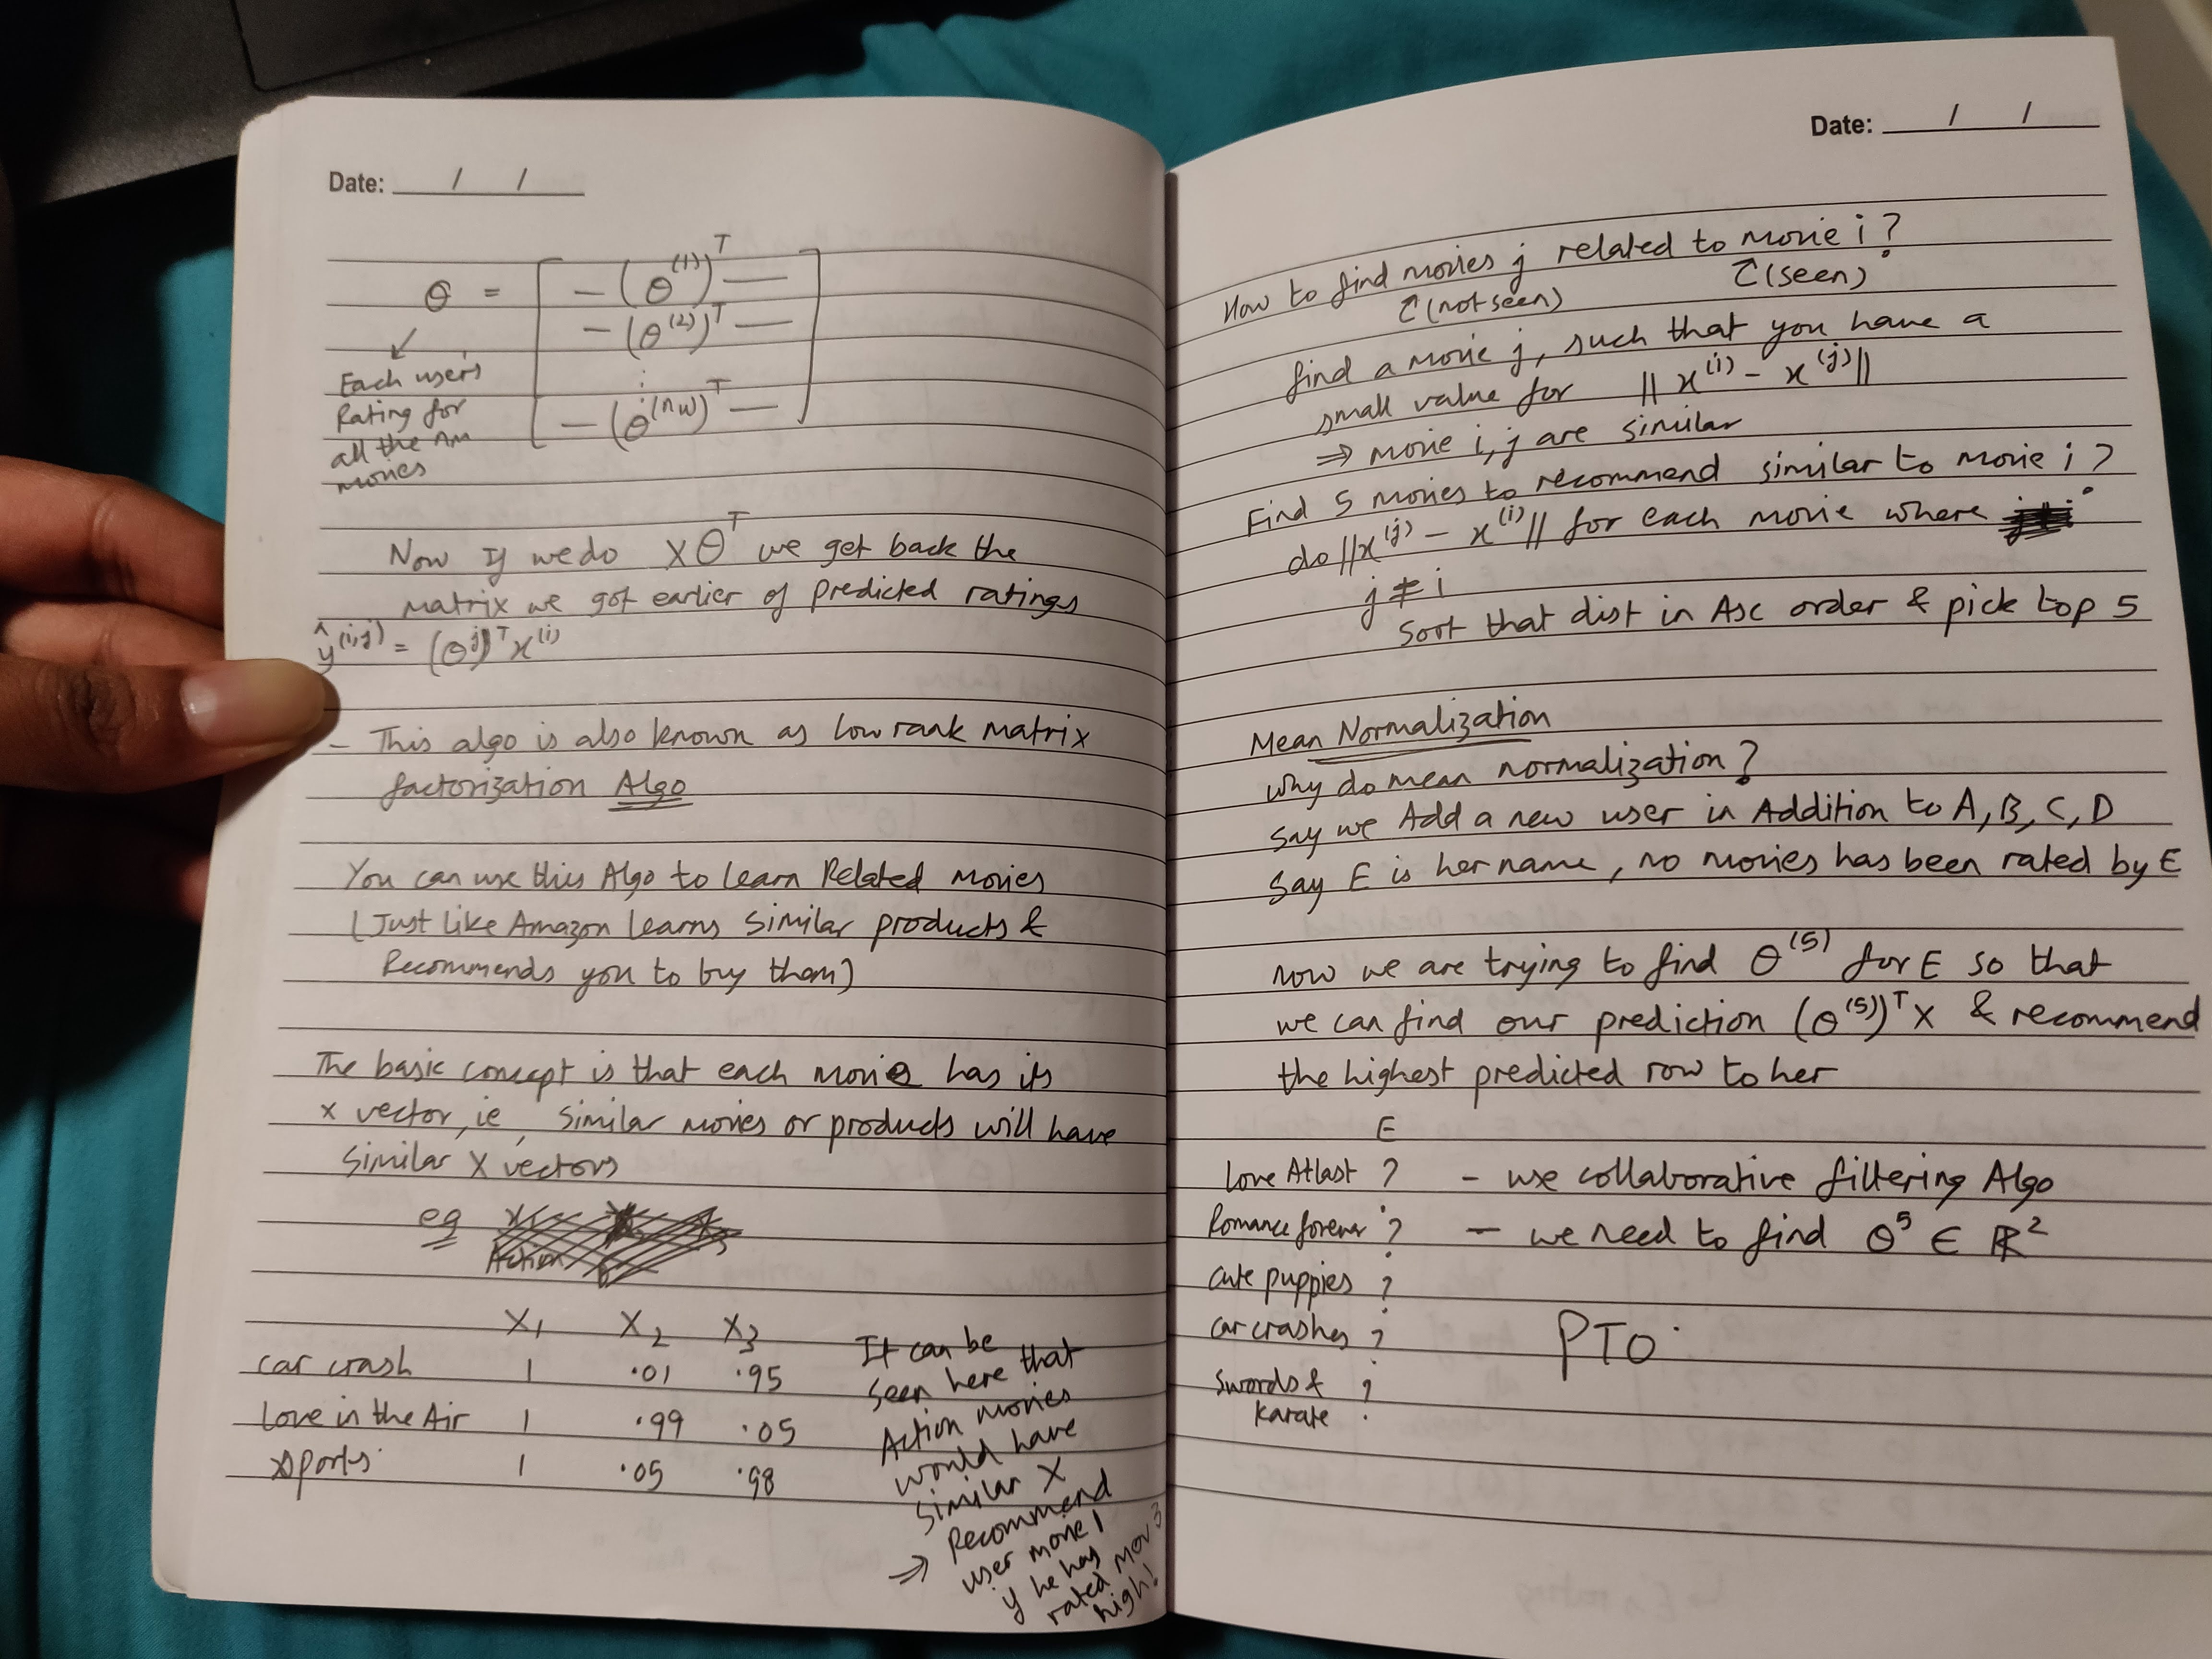 Date: / /
θ = [ – (θ^(1))^T —
– (θ^(2))^T —
⋮
– (θ^(nu))^T — ]
Each users
Rating for
all the nm
movies
Now If we do XΘ^T we get back the
matrix we got earlier of predicted ratings
ŷ^(i,j) = (θ^j)^T x^(i)
- This algo is also known as low rank matrix
factorization Algo
You can use this Algo to learn Related movies
(Just like Amazon learns similar products &
Recommends you to buy them)
The basic concept is that each movie has its
x vector, ie, similar movies or products will have
similar X vectors
eg
Action
X1 X2 X3
car crash 1 .01 .95
love in the Air 1 .99 .05
sports 1 .05 .98
It can be
seen here that
Action movies
would have
similar X
⇒ Recommend
user movie 1
if he has
rated mov 3
high!
Date: / /
How to find movies j related to movie i?
↑(not seen) ↑(seen)
find a movie j, such that you have a
small value for ||x^(i) - x^(j)||
⇒ movie i, j are similar
Find 5 movies to recommend similar to movie i?
do ||x^(j) - x^(i)|| for each movie where
j ≠ i
Sort that dist in Asc order & pick top 5
Mean Normalization
why do mean normalization?
Say we Add a new user in Addition to A, B, C, D
Say E is her name, no movies has been rated by E
now we are trying to find θ^(5) for E so that
we can find our prediction (θ^(5))^T X & recommend
the highest predicted row to her
E
Love At last ? - use collaborative filtering Algo
Romance forever ? - we need to find θ^5 ∈ R^2
Cute puppies ?
car crashes ?
PTO.
Swords & ?
karate